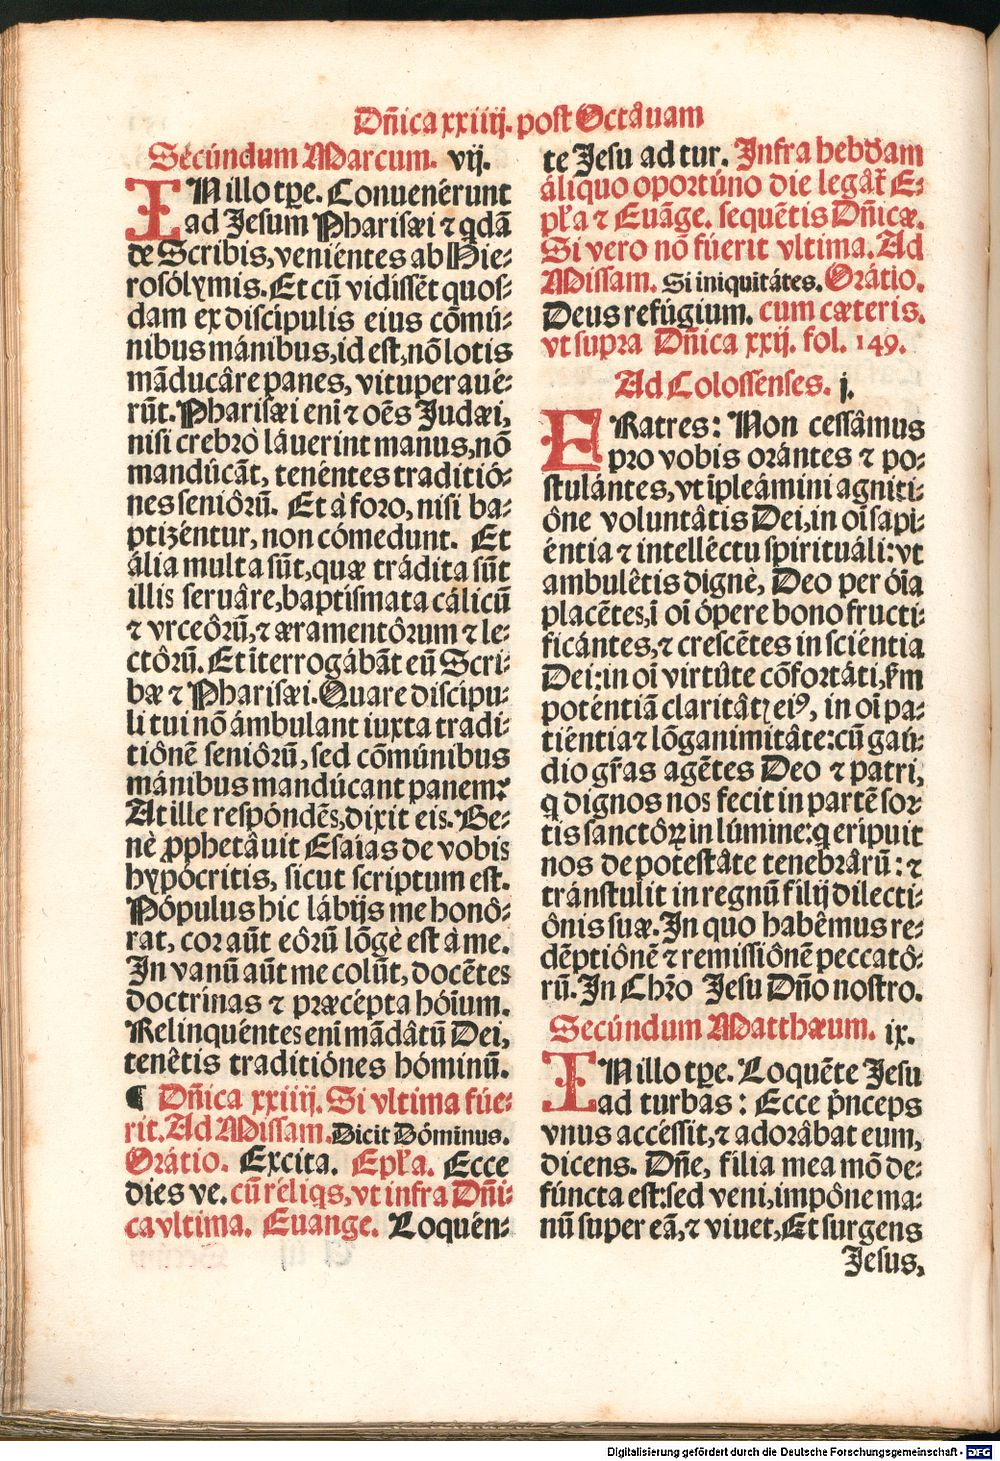 Dñica xxiiij. post Octâuam
Secúndum Marcum. vij.
IN illo tp̃e. Conuenérunt
ad Jesum Pharisæi ⁊ qdã
de Scribis, veniéntes ab Hie-
rosólymis. Et cũ vidissẽt quos-
dam ex discípulis eius cõmú-
nibus mánibus, id est, nõ lotis
mãducâre panes, vituperaué-
rũt. Pharisæi eni ⁊ oẽs Judæi,
nisi crebrò láuerint manus, nõ
mandúcãt, tenéntes traditió-
nes seniôrũ. Et à foro, nisi ba-
ptizéntur, non cómedunt. Et
ália multa sũt, quæ trádita sũt
illis seruâre, baptismata cálicũ
⁊ vrceôrũ, ⁊ æramentôrum ⁊ le-
ctôrũ. Et ĩterrogábãt eũ Scri-
bæ ⁊ Pharisæi. Quare discípu-
li tui nõ ámbulant iuxta tradi-
tiônẽ seniôrũ, sed cõmúnibus
mánibus mandúcant panem?
At ille respóndẽs, dixit eis. Be-
nè ꝓphetâuit Esaias de vobis
hypócritis, sicut scriptum est.
Pópulus hic lábijs me honô-
rat, cor aũt eôrũ lõgè est à me.
In vanũ aũt me colũt, docẽtes
doctrinas ⁊ præcépta hóĩum.
Relinquéntes enĩ mãdâtũ Dei,
tenêtis traditiónes hóminũ.
¶ Dñica xxiiij. Si vltima fúe-
rit. Ad Missam. Dicit Dóminus.
Orátio. Excita. Epl̃a. Ecce
dies ve. cũ réliqs, vt infra Dñi-
ca vltima. Euange. Loquén-
te Jesu ad tur. Infra hebdam
áliquo oportúno die legãt̃ E-
pl̃a ⁊ Euãge. sequẽtis Dñicæ.
Si vero nõ fúerit vltima. Ad
Missam. Si iniquitátes. Orátio.
Deus refúgium. cum cæteris.
vt supra Dñica xxij. fol. 149.
Ad Colossenses. j.
FRatres: Non cessâmus
pro vobis orántes ⁊ po-
stulántes, vt ĩpleámini agniti-
ône voluntâtis Dei, in oĩ sapi-
éntia ⁊ intelléctu spirituáli: vt
ambulêtis dignè, Deo per óĩa
placẽtes, ĩ oĩ ópere bono fructi-
ficántes, ⁊ crescẽtes in sciéntia
Dei: in oĩ virtûte cõfortáti, s̃m
poténtiã claritâtꝭ eiꝰ, in oĩ pa-
tiéntia ⁊ lõganimitâte: cũ gaú-
dio gr̃as agẽtes Deo ⁊ patri,
q dignos nos fecit in partẽ sor-
tis sanctôꝝ in lúmine: q erípuit
nos de potestâte tenebrârũ: ⁊
tránstulit in regnũ filij dilecti-
ônis suæ. In quo habêmus re-
dẽptiônẽ ⁊ remissiônẽ peccatô-
rũ. In Chr̃o Jesu Dño nostro.
Secúndum Matthæum. ix.
IN illo tp̃e. Loquẽte Jesu
ad turbas: Ecce pñceps
vnus accéssit, ⁊ adorâbat eum,
dicens. Dñe, filia mea mõ de-
fúncta est: sed veni, impône ma-
nũ super eã, ⁊ viuet, Et surgens
Jesus,
Digitalisierung gefördert durch die Deutsche Forschungsgemeinschaft - DFG